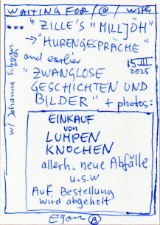 WAITING FOR /@/ WITH
... "ZILLE'S "MILLJÖH"
→ "HURENGESPRÄCHE"
and earlier
"ZWANGLOSE
15.III
2025
GESCHICHTEN UND
BILDER" + photos:
EINKAUF
von
LUMPEN
KNOCHEN
allerh. neue Abfälle
u.s.w
Auf Bestellung
wird abgeholt
w/ Johanna